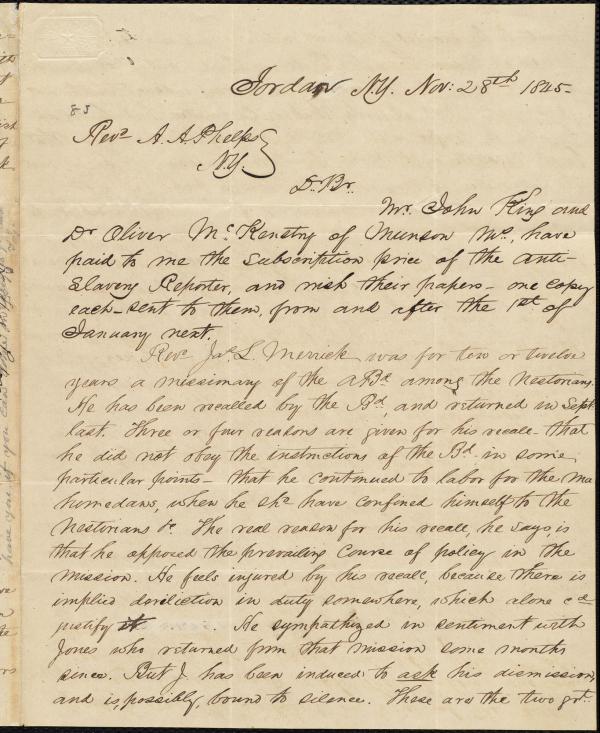 Jordan N.Y. Nov: 28th 1845-
83
Revd A. A. Phelps
N.Y.
Dr. Br.
Mr. John King and
Dr Oliver Mc.Kenstry of Munson Ms., have
paid to me the subscription price of the Anti-
Slavery Reporter, and wish their papers - one copy
each - sent to them, from and after the 1st. of
January next.
Revd. Jas. L. Merrick was for ten or twelve
years a missionary of the A Bd. among the Nestorians.
He has been recalled by the Bd, and returned in Sept
last. Three or four reasons are given for his recall - that
he did not obey the instructions of the Bd. in some
particular points - that he continued to labor for the Ma
homedans, when he shd have confined himself to the
Nestorians &c. The real reason for his recall, he says is
that he opposed the prevailing course of policy in the
mission. He feels injured by his recall, because there is
implied dereliction in duty somewhere, which alone cd
justify it. He sympathized in sentiment with
Jones who returned from that mission some months
since. But J. has been induced to ask his dismission,
and is, possibly, bound to silence. These are the two grt.
have you if you can